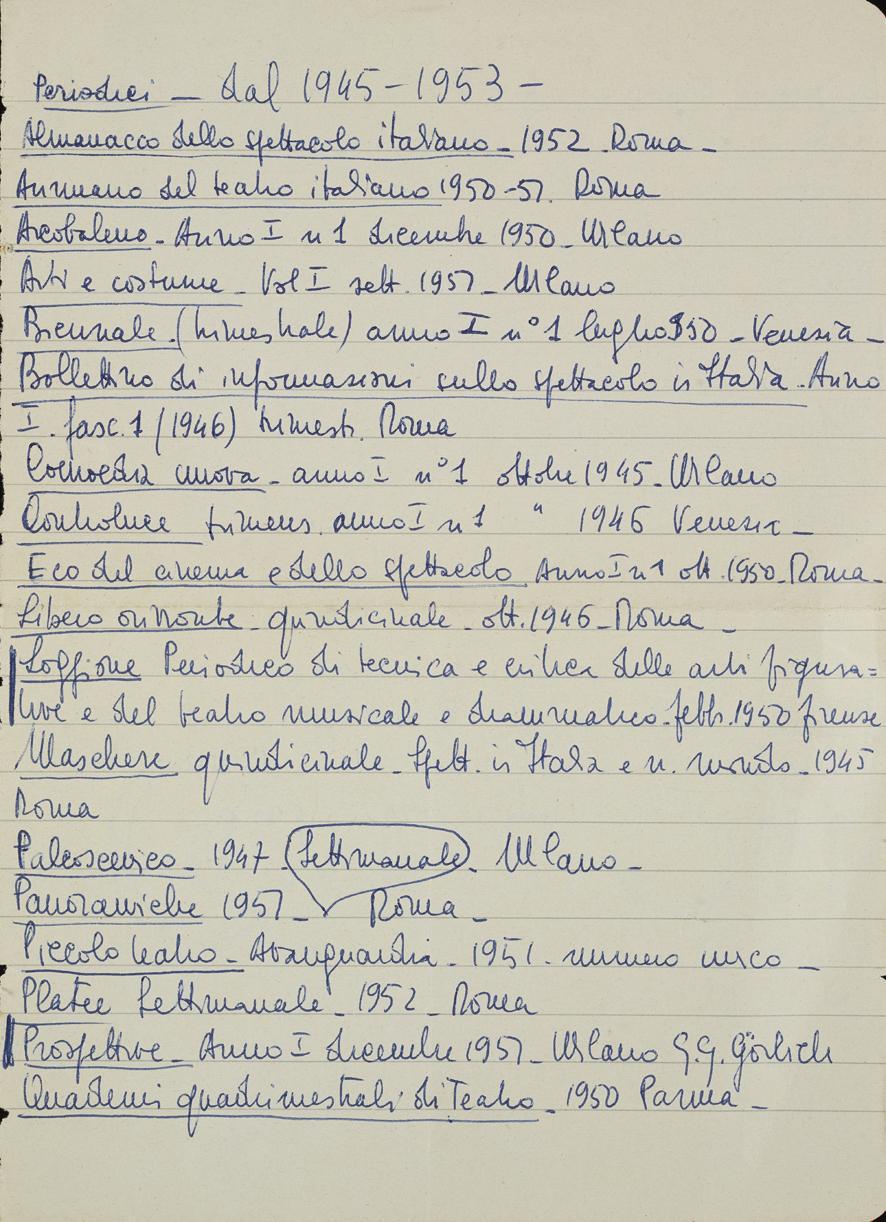 Periodici – dal 1945-1953 –
Almanacco dello spettacolo italiano – 1952. Roma –
Annuario del teatro italiano 1950-51. Roma
Arcobaleno – Anno I n 1 dicembre 1950 – Milano
Arti e costume – Vol I sett. 1951 – Milano
Biennale (trimestrale) anno I n° 1 luglio 950 – Venezia –
Bollettino di informazioni sullo spettacolo in Italia. Anno
I. fasc. 1 (1946) trimestr. Roma
Comoedia nuova – anno I n° 1 ottobre 1945 – Milano
Controluce anno I n 1 " 1946 Venezia –
Eco del cinema e dello spettacolo Anno I n 1 ott. 1950 – Roma –
Libero orizzonte – quindicinale – ott. 1946 – Roma –
Loggione Periodico di tecnica e critica delle arti figura=
tive e del teatro musicale e drammatico – febbr. 1950 firenze
Maschere quindicinale – Spett. in Italia e n. mondo – 1945
Roma
Palcoscenico – 1947 (Settimanale) – Milano –
Panoramiche 1951 – Roma –
Piccolo teatro – Avanguardia – 1951. numero unico –
Platee Settimanale – 1952 – Roma
Prospettive – Anno I dicembre 1951 – Milano G.G. Görlich
Quaderni quadrimestrali di Teatro – 1950 Parma –